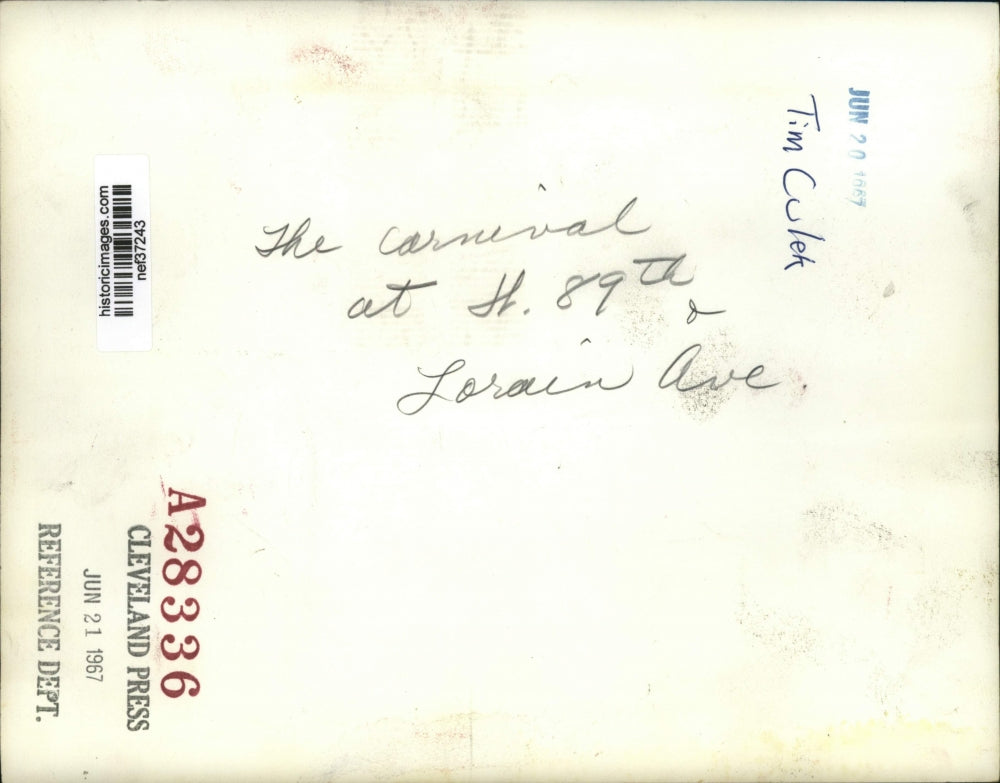 The Carnival
at W. 89th &
Lorain Ave.
JUN 20 1967
Tim Culek
historicimages.com
nef37243
A28336
CLEVELAND PRESS
JUN 21 1967
REFERENCE DEPT.